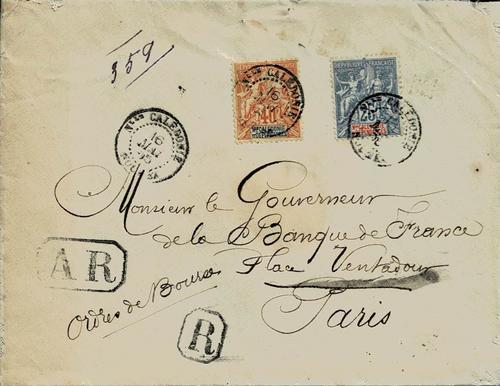 359
Nlle CALÉDONIE
16
MAI
95
Nlle CALÉDONIE
16
40
RÉPUBLIQUE FRANÇAISE
Nlle CALÉDONIE
Monsieur le Gouverneur
de la Banque de France
Place Ventadour
Paris
AR
Ordres de Bourse
R